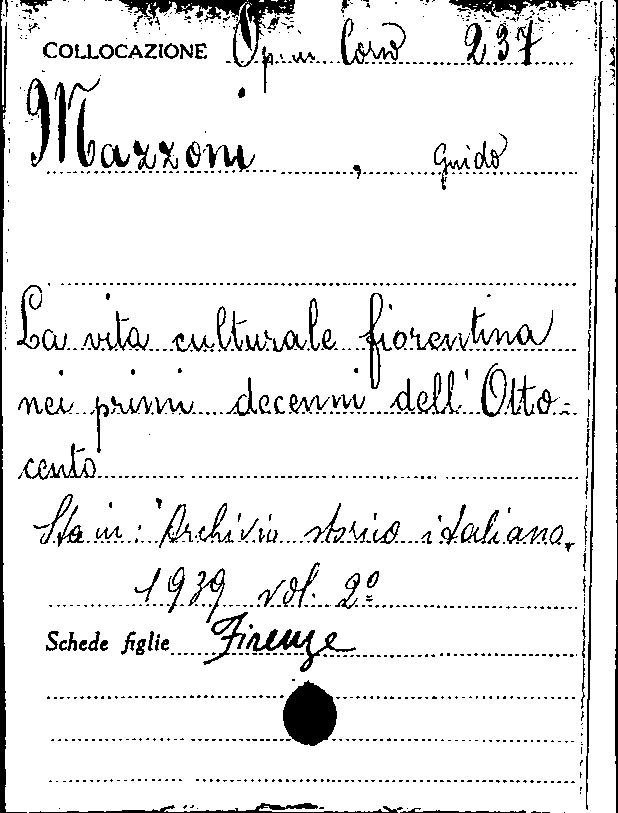 COLLOCAZIONE Op. in Corso 237
Mazzoni, Guido
La vita culturale fiorentina
nei primi decenni dell'Otto-
cento
Sta in: "Archivio storico italiano,
1939 vol. 2º
Schede figlie Firenze